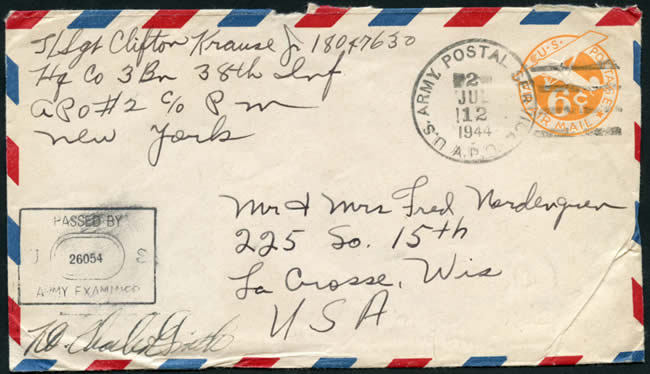 T/Sgt Clifton Krause Jr 18047630
Hq Co 3 Bn 38th Inf
APO #2 c/o P m
New York
U.S. ARMY POSTAL SERVICE
2
JUL
12
1944
A.P.O.
U.S. POSTAGE
6c
AIR MAIL
PASSED BY
U S
26054
ARMY EXAMINER
Mr & Mrs Fred
225 So. 15th
La Crosse, Wis
USA